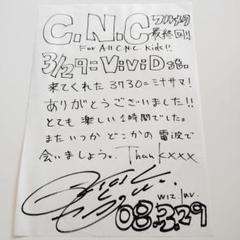 C.N.C フルメタ
最終回!!
For All C.N.C. Kids!!
3/29=V:v:D st.
来てくれた3730=ミナサマ!
ありがとうございました!!
とても楽しい1時間でした。
またいつか どこかの電波で
会いましょう。Thankxxx
wiz luv.
08.3.29